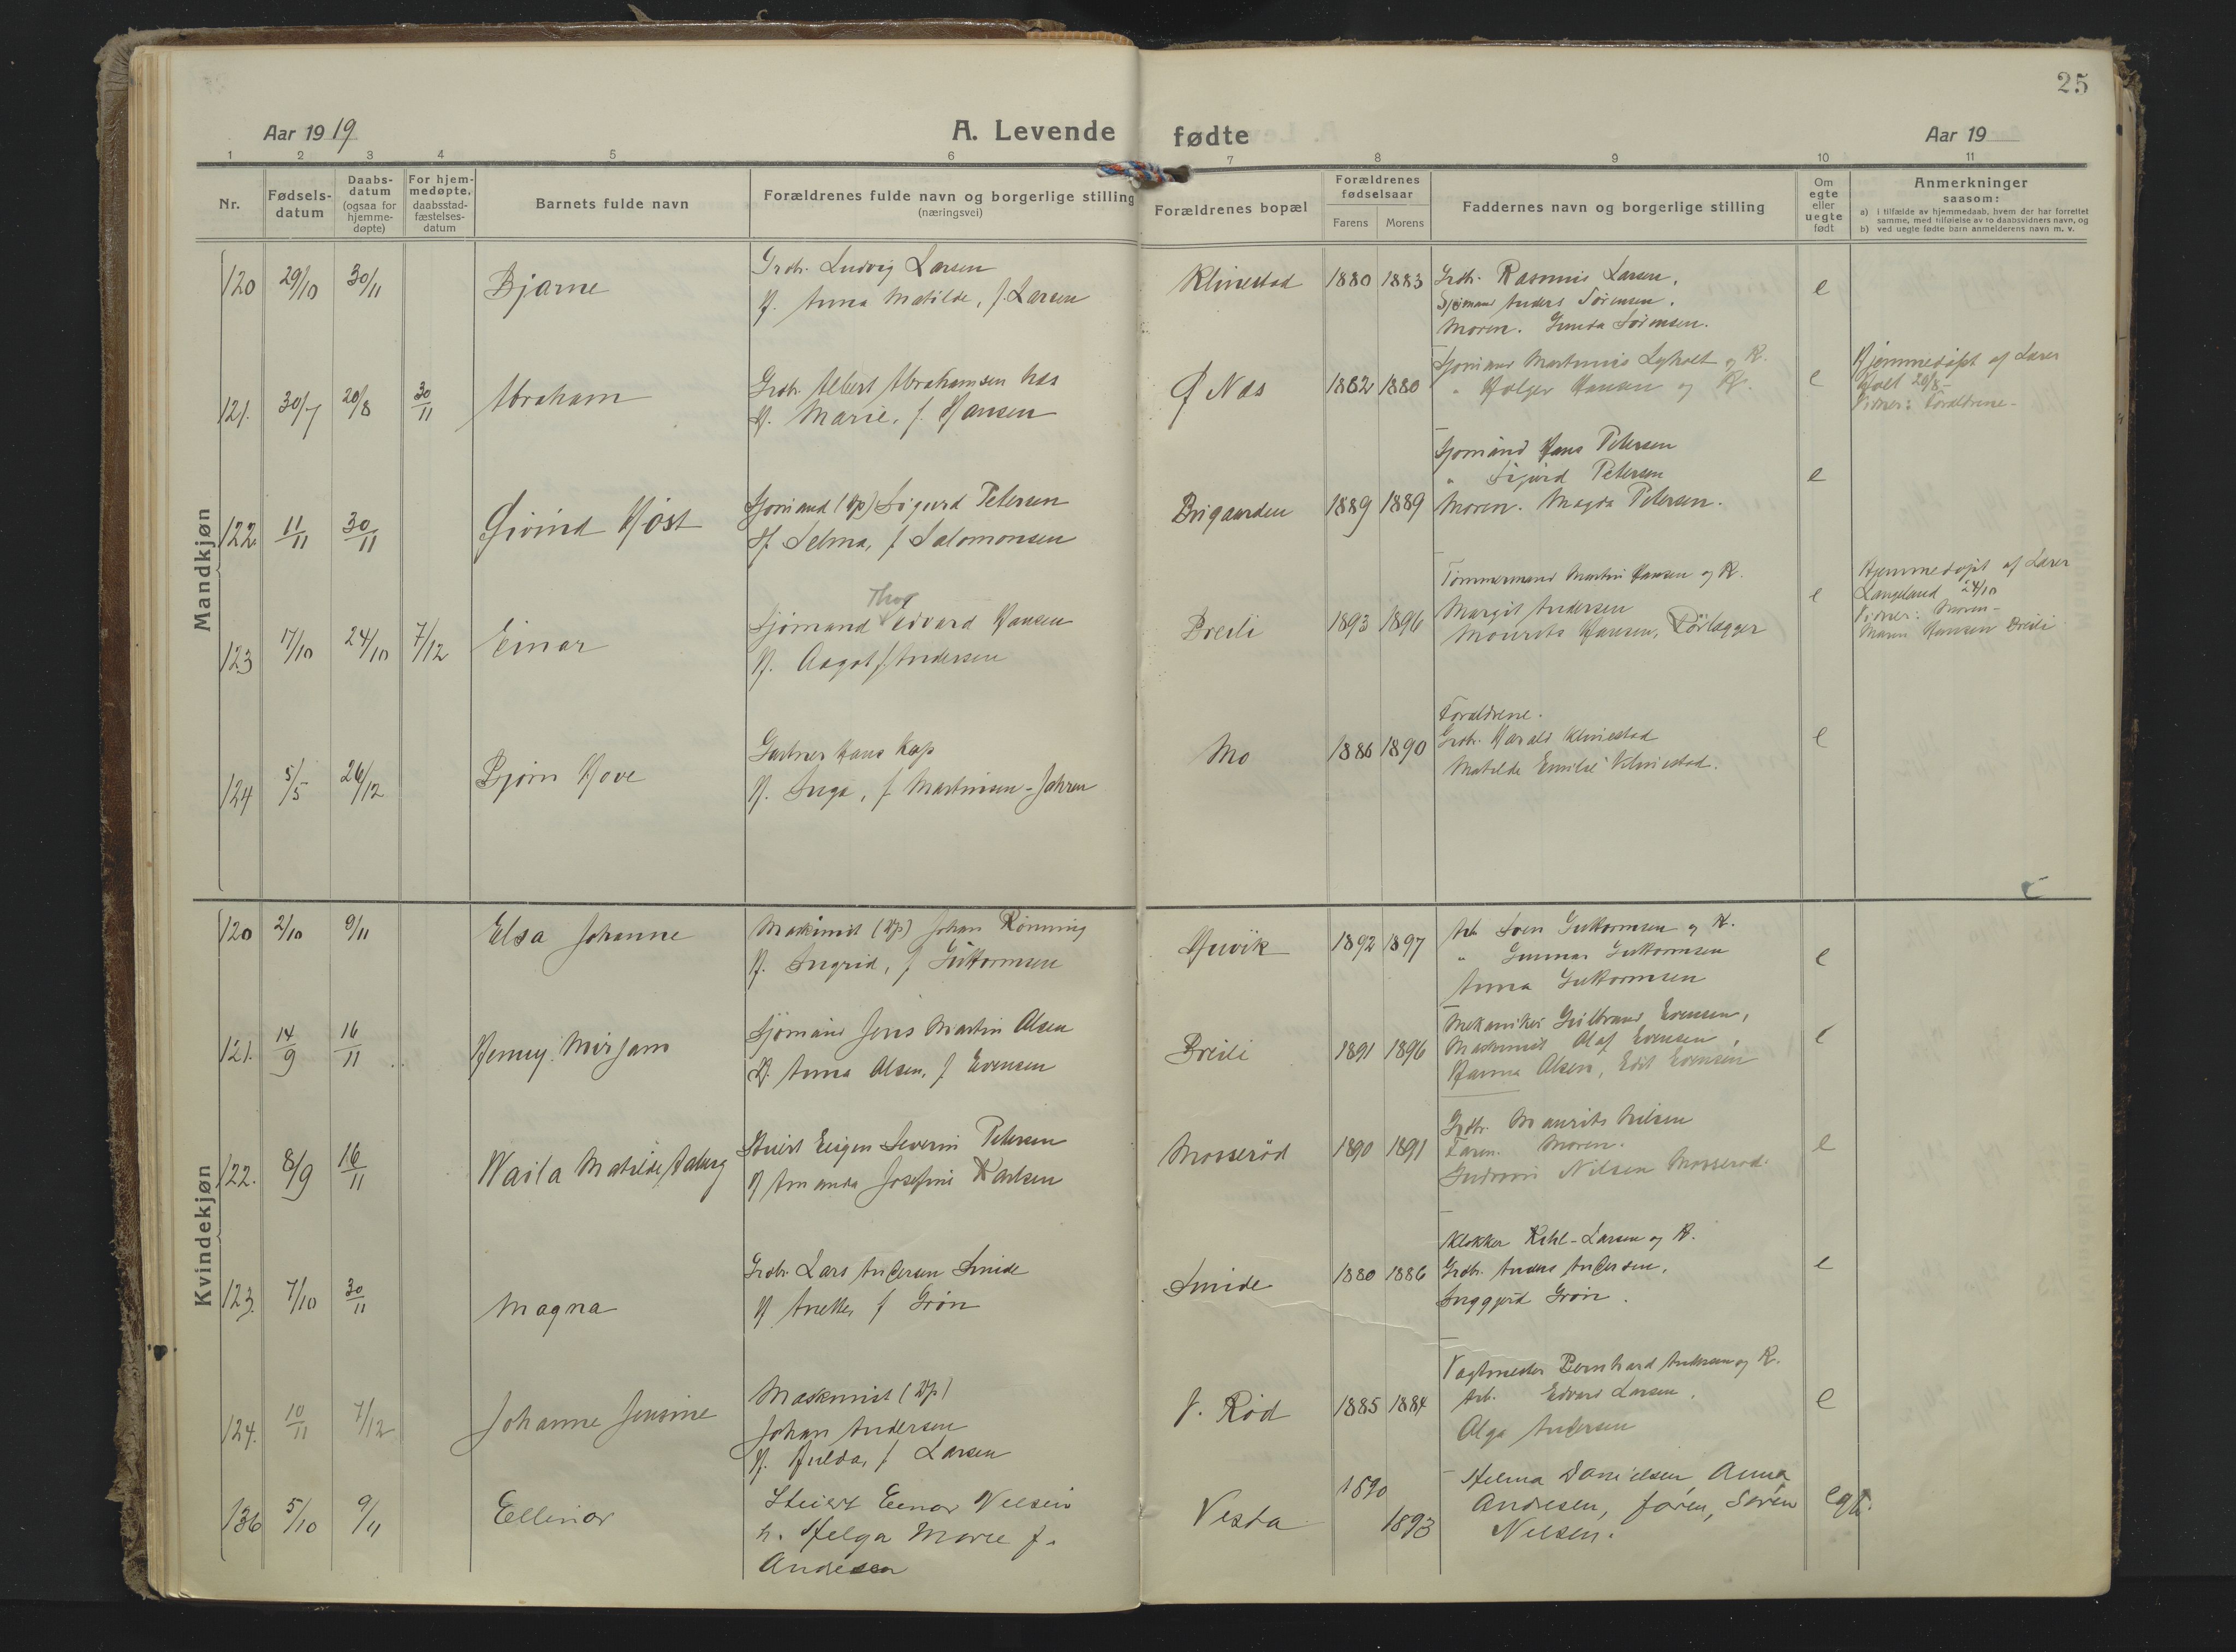 25
Aar 1919
A. Levende fødte
Aar 19
1 2 3 4 5 6 7 8 9 10 11
Nr.
Fødsels-
datum
Daabs-
datum
(ogsaa for
hjemme-
døpte)
For hjem-
medøpte,
daabsstad-
fæstelses-
datum
Barnets fulde navn
Forældrenes fulde navn og borgerlige stilling
(næringsvei)
Forældrenes bopæl
Forældrenes
fødselsaar
Farens Morens
Faddernes navn og borgerlige stilling
Om
egte
eller
uegte
født
Anmerkninger
saasom:
a) i tilfælde av hjemmedaab, hvem der har forrettet
samme, med tilføielse av to daabsvidners navn, og
b) ved uegte fødte barn anmelderens navn m. v.
Mandkjøn
120 29/10 30/11 Bjarne
Grdbr. Ludvig Larsen
H. Anna Matilde, f. Larsen
Klinestad 1880 1883
Grdbr. Rasmus Larsen.
Sjømand Anders Sørensen.
Moren. Gunda Sørensen.
e
121. 30/7 20/8 30/11 Abraham
Grdbr. Albert Abrahamsen Næs
H. Marie, f. Hansen
Ø Næs 1882 1880
Sjømand Martinius Lyholt og K.
" Holger Hansen og K.
e
Hjemmedøpt af Lærer
Holt 20/8-
Vidner: Forældrene-
122 11/11 30/11 Øivind Høst
Sjømand (Dp) Sigurd Petersen
H. Selma, f Salomonsen
Brigaarden 1889 1889
Sjømand Hans Petersen
" Sigurd Petersen
Moren. Magda Petersen.
e
123 17/10 24/10 7/12 Einar
Thog
Sjømand Edvard Hansen
H. Aagot f. Andersen
Breili 1893 1896
Tømmermand Martin Hansen og K.
Margit Andersen
Mourits Hansen, Rörlægger
e
Hjemmedøpt af Lærer
Langeland 24/10
Vidner: Moren-
Maren Hansen Breili
124 5/5 26/12 Bjørn Hove
Gartner Hans Kap
H. Inga, f Martinsen-Jahren
Mo 1886 1890
Forældrene.
Grdbr. Harald Klinestad
Matilde Emilie Klinestad.
e
Kvindekjøn
120 2/10 9/11 Elsa Johanne
Maskinist (Dp) Johan Rønning
H. Ingrid, f Guttormsen
Huvik 1892 1897
Arb. Sven Guttormsen og K.
" Gunnar Guttormsen
Anna Guttormsen
e
121. 14/9 16/11 Henny Mirjam
Sjømand Jens Martin Olsen
H. Anna Olsen, f Evensen
Breili 1891 1896
Mekaniker Gulbrand Evensen,
Maskinist Olaf Evensen,
Hanna Olsen, Edit Evensen
e
122. 8/9 16/11 Naila Matilde
Stuert Eigen Severin Petersen
H Amanda Josefine Karlsen
Mosserød 1890 1891
Grdbr. Maurits Nilsen
Faren. Moren.
Gudrun Nilsen Mosserød.
e
123. 7/10 30/11 Magna
Grdbr. Lars Andersen Smide
H Anette, f Grøn
Smide 1880 1886
Klokker Kihl-Larsen og K.
Grdbr. Anders Andersen.
Inggjerd Grøn.
e
124. 10/11 7/12 Johanne Jensine
Maskinist (Dp)
Johan Andersen
H. Hulda, f Larsen
V. Rød 1885 1884
Vagtmester Bernhard Andersen og K.
Arb. Edvard Larsen.
Olga Andersen
e
136 5/10 9/11 Ellinor
Stuert Einar Nielsen
h. Helga Marie f.
Andresen
Vesta 1890
1893
Helma Danielsen, Anna
Andresen, faren, Søren
Nielsen.
egt.